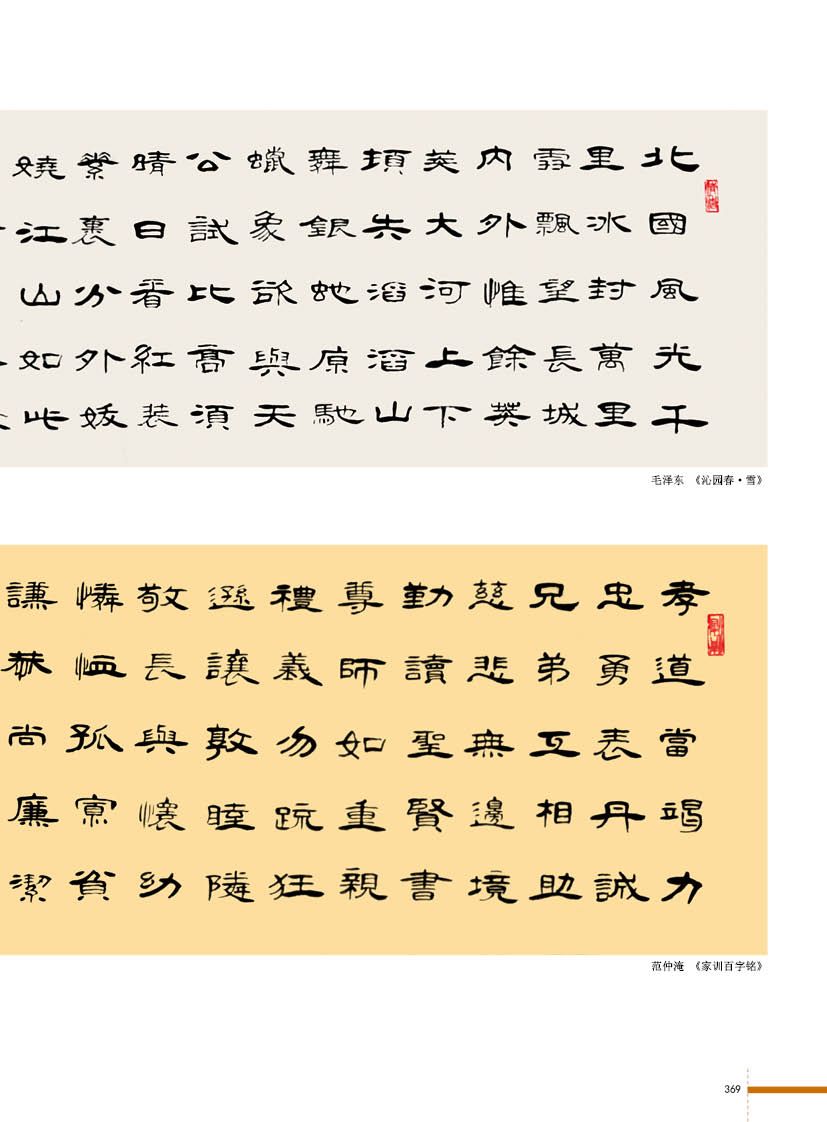 北國風光千
里冰封萬里
雪飄望長城
内外惟餘莽
莽大河上下
頓失滔滔山
舞銀蛇原馳
蠟象欲與天
公試比高須
晴日看紅装
素裹分外妖
嬈江山如此
毛泽东 《沁园春·雪》
孝道當竭力
忠勇表丹誠
兄弟互相助
慈悲無邊境
勤讀聖賢書
尊師如重親
禮義勿疏狂
遜讓敦睦隣
敬長與懷幼
憐恤孤寡貧
謙恭尚廉潔
范仲淹 《家训百字铭》
369